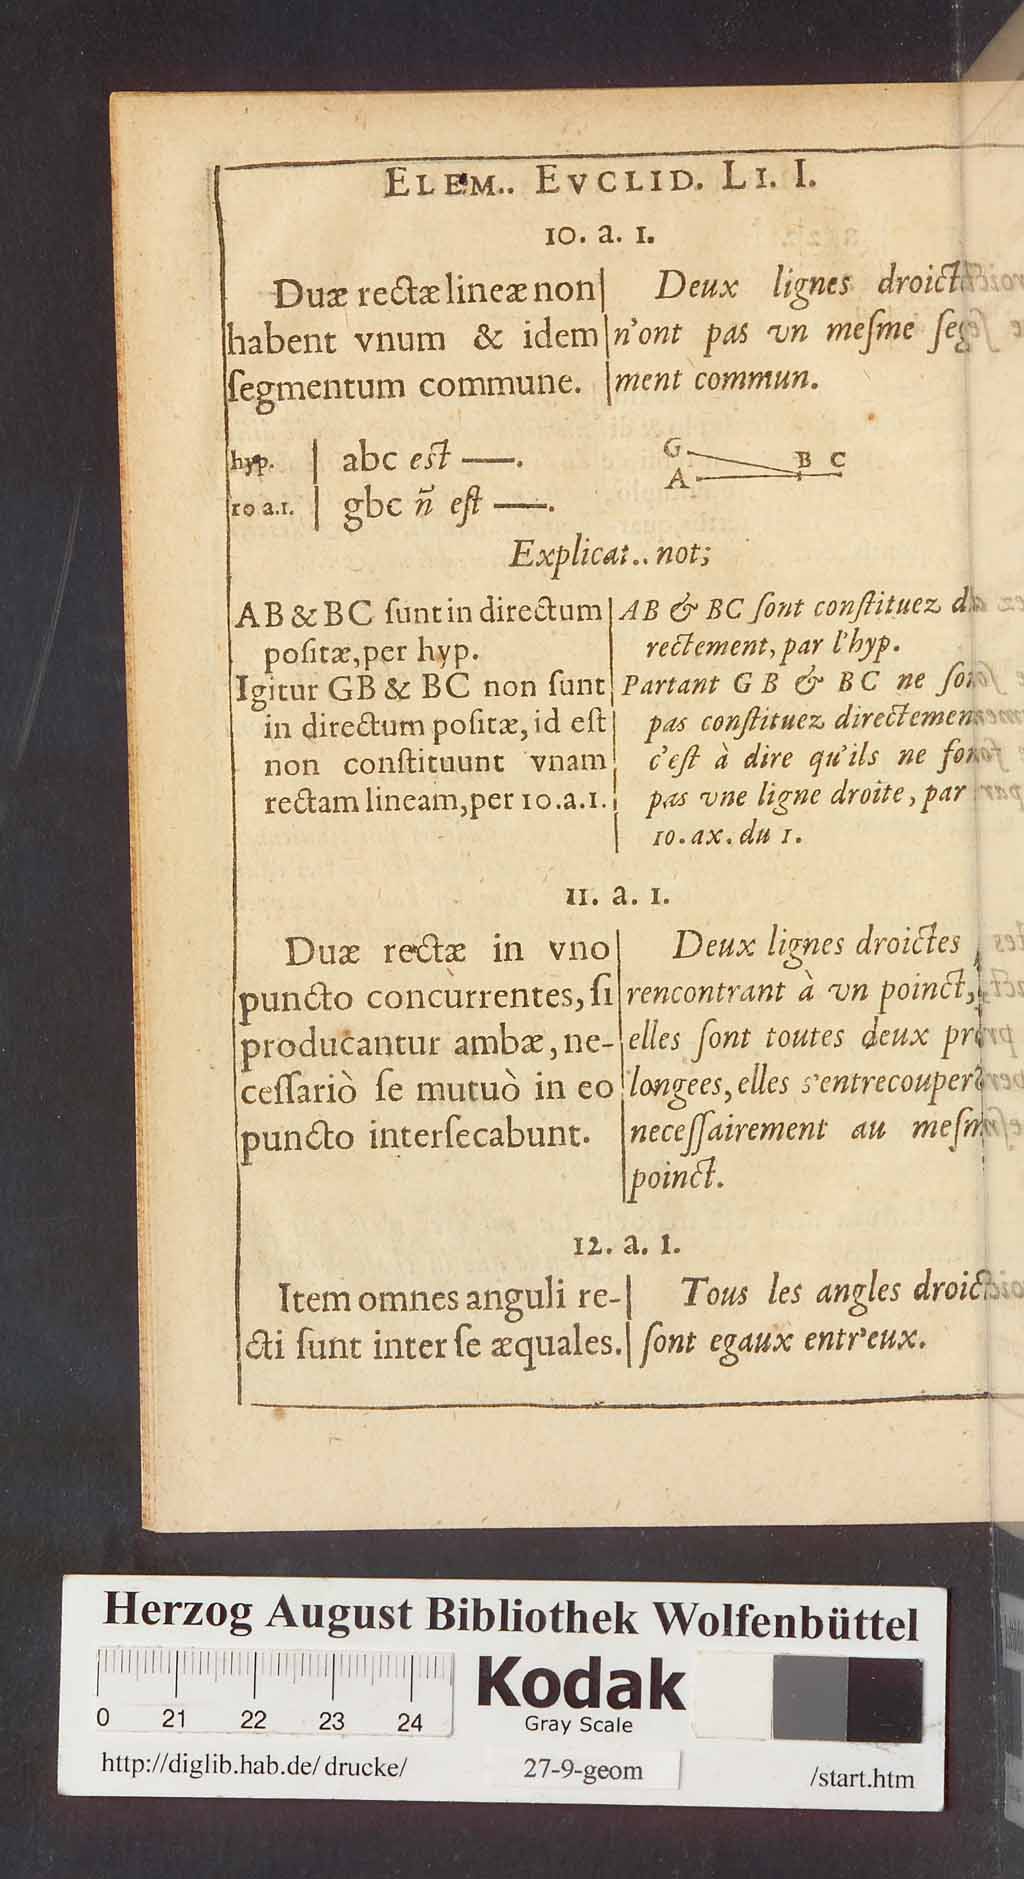 ELEM.. EVCLID. LI. I.
10. a. 1.
Duæ rectæ lineæ non
habent vnum & idem
ſegmentum commune.
Deux lignes
n'ont pas vn meſme
ment commun.
hyp. | abc est —.
10 a.1. | gbc ñ eſt —.
G
A
B C
Explicat.. not;
AB & BC ſunt in directum
poſitæ, per hyp.
Igitur GB & BC non ſunt
in directum poſitæ, id eſt
non conſtituunt vnam
rectam lineam, per 10.a.1.
AB & BC ſont conſtituez
rectement, par l'hyp.
Partant GB & BC ne
pas conſtituez
c'eſt à dire qu'ils ne
pas vne ligne droite, par
10. ax. du 1.
11. a. 1.
Duæ rectæ in vno
puncto concùrrentes, ſi
producantur ambæ, ne-
ceſſariò ſe mutuò in eo
puncto interſecabunt.
Deux lignes droictes
rencontrant à vn poinct,
elles ſont toutes deux
longees, elles
neceſſairement au
poinct.
12. a. 1.
Item omnes anguli re-
cti ſunt inter ſe æquales.
Tous les angles
ſont egaux entr'eux.
Herzog August Bibliothek Wolfenbüttel
0 21 22 23 24
Kodak
Gray Scale
http://diglib.hab.de/drucke/ 27-9-geom /start.htm